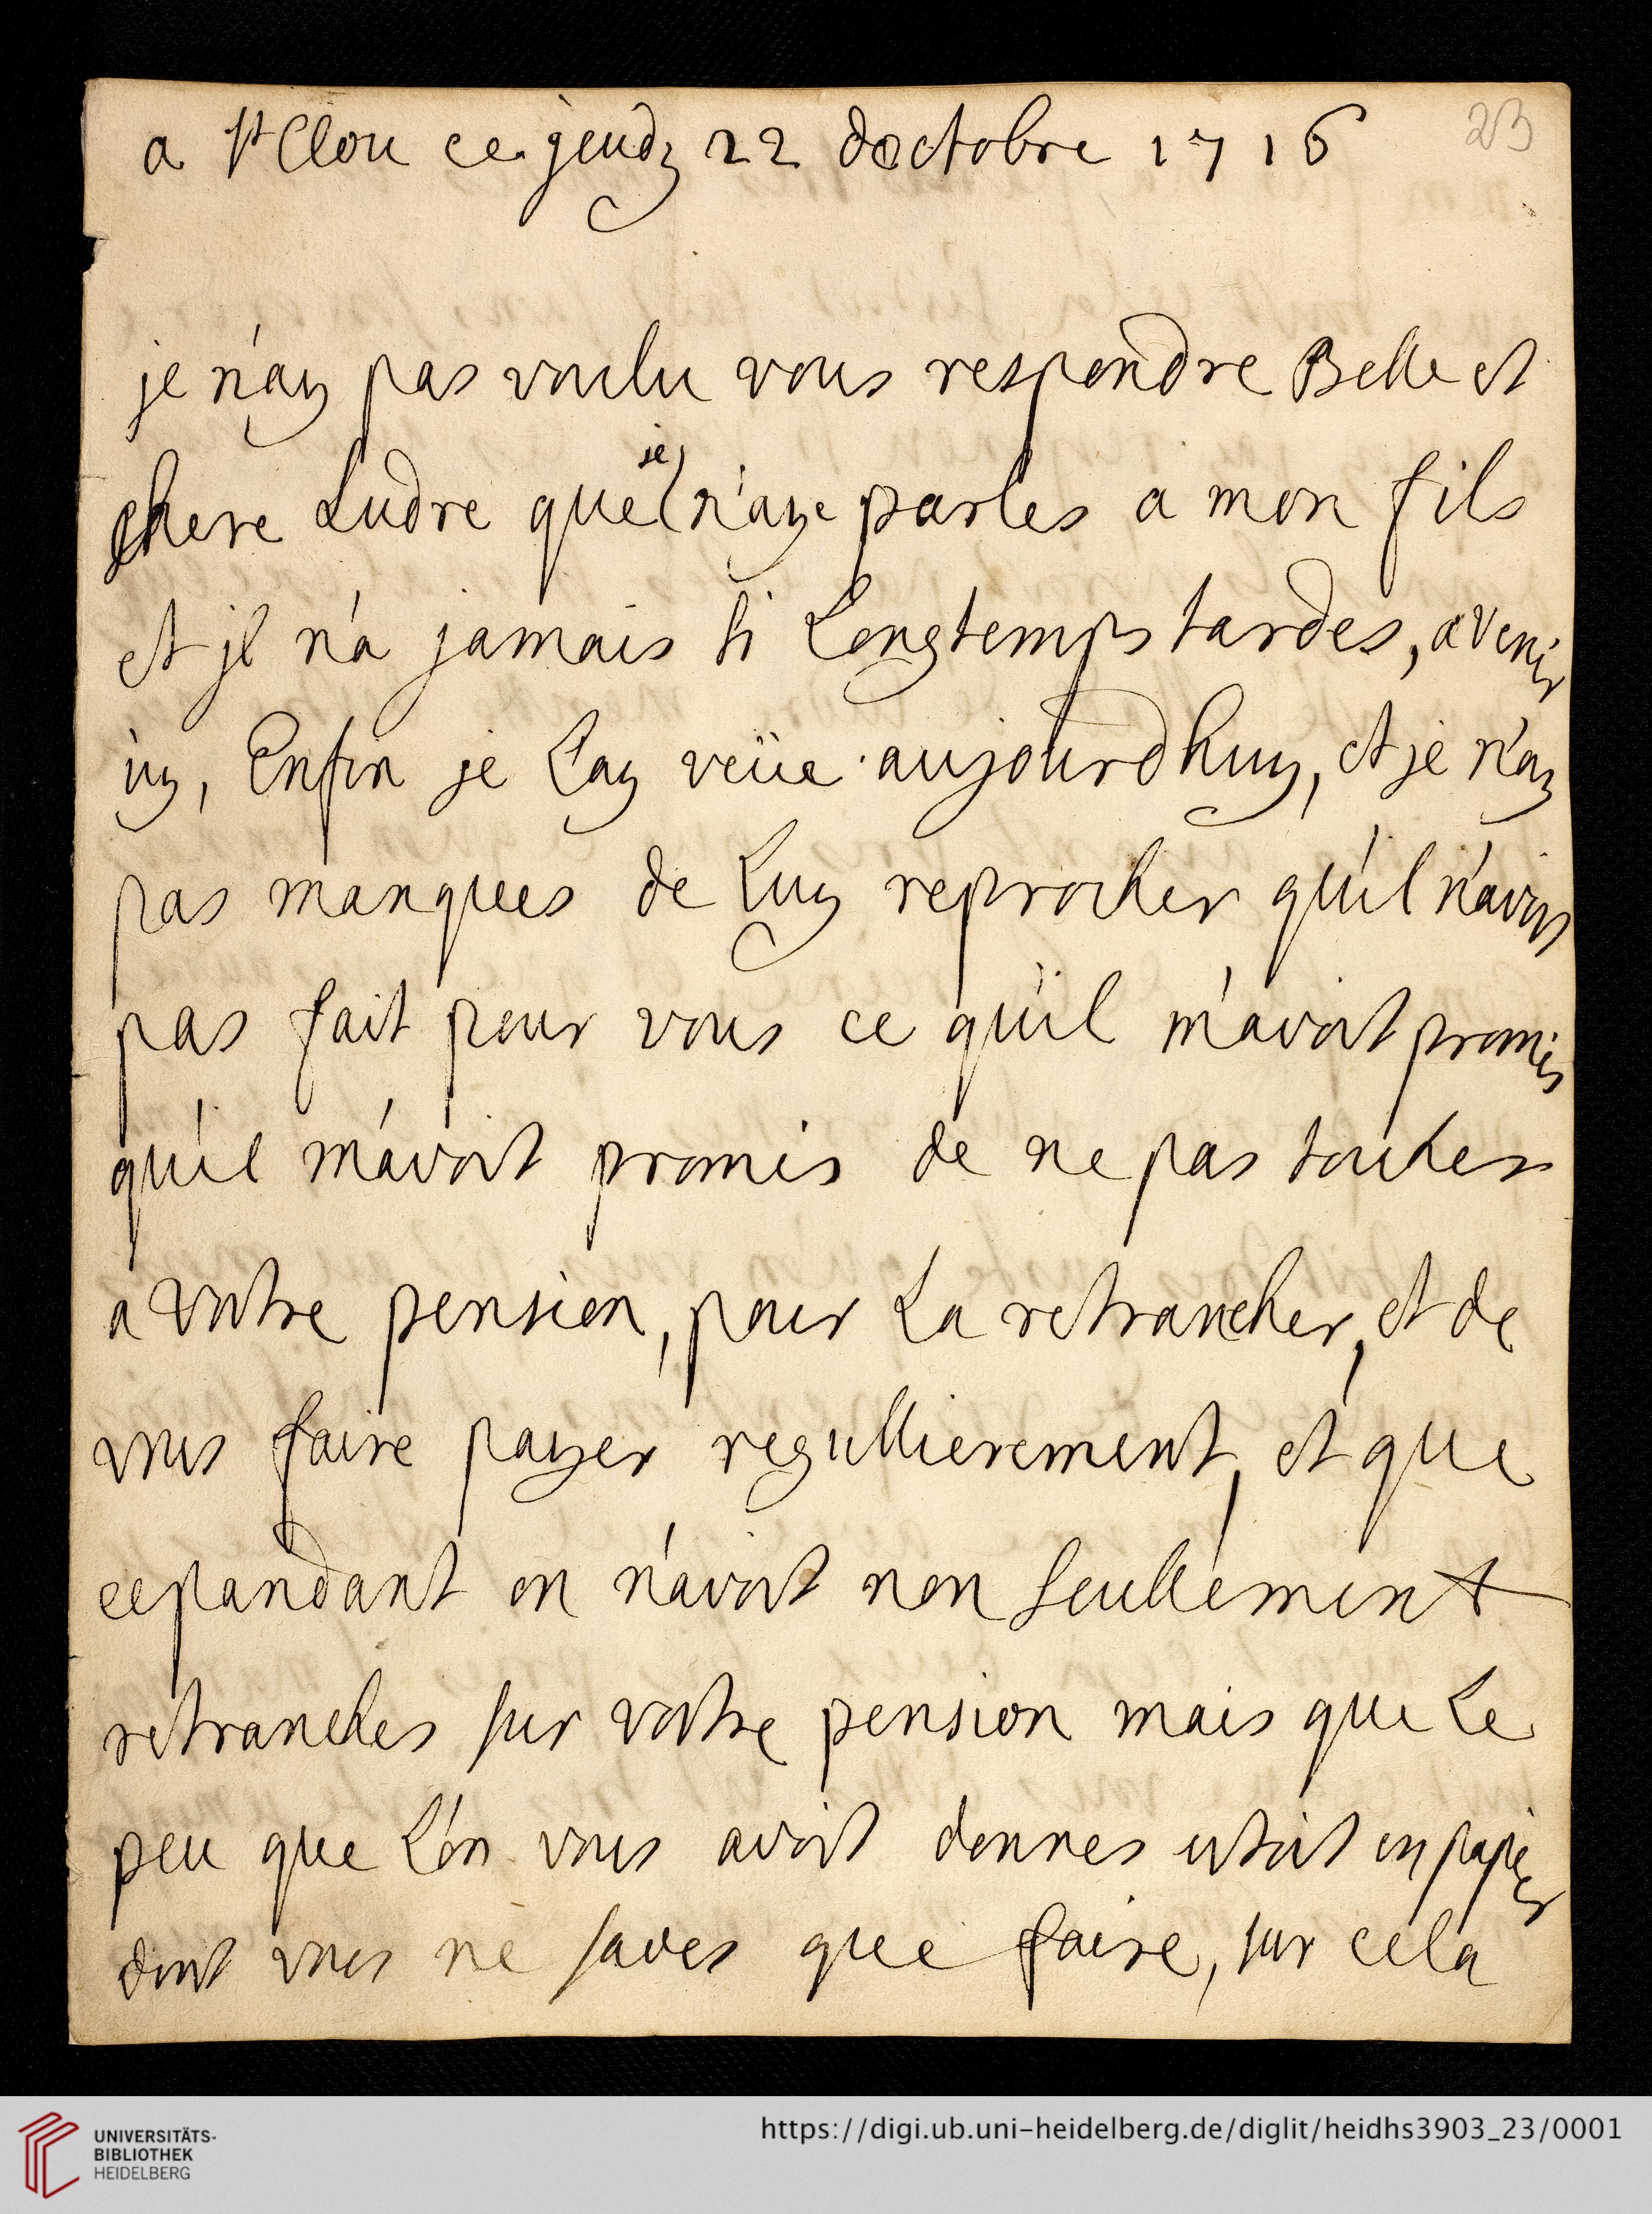 a St Clou ce jeudy 22 doctobre 1716
23
je n'ay pas voulu vous respondre Belle et
chere Ludre que je n'aye parles a mon fils
et jl n'a jamais si Longtemps tardes, a venir
icy, Enfin je L'ay veüe aujourdhuy, et je n'ay
pas manquees de Luy reprocher qu'il n'avoit
pas fait pour vous ce qu'il m'avoit promis
qu'il m'avoit promis de ne pas toucher
a vostre pension, pour La retrancher, et de
vous faire payer regullierement, et que
cepandant on n'avoit non seullement
retranches sur vostre pension mais que Le
peu que L'on vous avoit donnes estoit en papier
dont vous ne saves que faire, sur cela
UNIVERSITÄTS-
BIBLIOTHEK
HEIDELBERG
https://digi.ub.uni-heidelberg.de/diglit/heidhs3903_23/0001